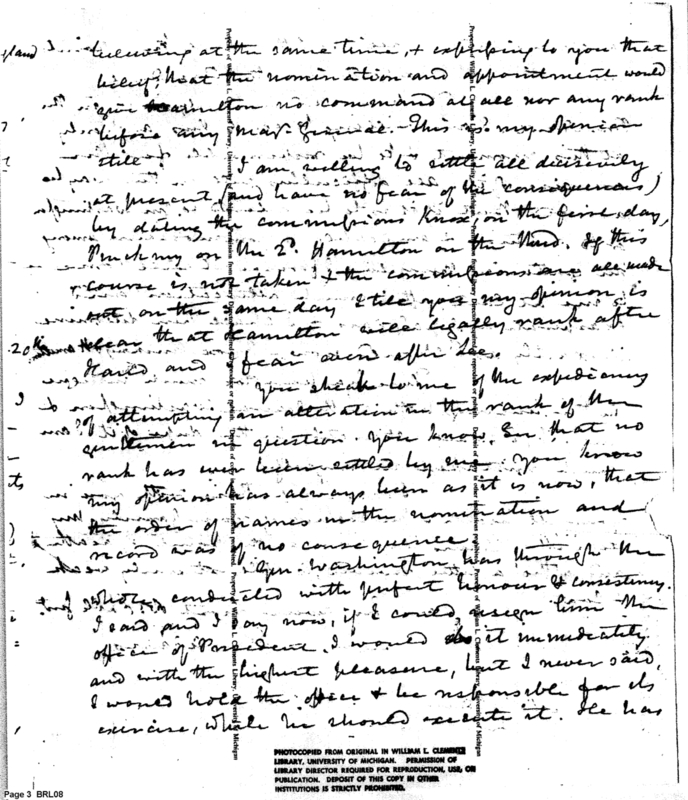 believing at the same time, & expressing to you that
belief, that the nomination and appointment would
give Hamilton no command at all nor any rank
before any Maj. General. This is my opinion
still. I am willing to settle all decisively
at present (and have no fear of the consequences)
by dating the commissions Knox, on the first day,
Pinckney on the 2d. Hamilton on the third. If this
course is not taken & the commissions are all made
out on the same day I tell you my opinion is
clear that Hamilton will legally rank after
Hand and I fear even after Lee.
You speak to me of the expediency
of attempting an alteration in the rank of the
gentlemen in question. You know, Sir that no
rank has ever been settled by me. You know
my opinion has always been as it is now, that
the order of names in the nomination and
record was of no consequence.
Gen. Washington has through the
whole, conducted with perfect honour & consistency.
I said and I say now, if I could resign him the
office of President I would do it immediately
and with the highest pleasure, but I never said,
I would hold the office & be responsible for its
exercise, while he should execute it. He has
PHOTOCOPIED FROM ORIGINAL IN WILLIAM L. CLEMENTS
LIBRARY, UNIVERSITY OF MICHIGAN. PERMISSION OF
LIBRARY DIRECTOR REQUIRED FOR REPRODUCTION, USE, OR
PUBLICATION. DEPOSIT OF THIS COPY IN OTHER
INSTITUTIONS IS STRICTLY PROHIBITED.
Page 3 BRL08